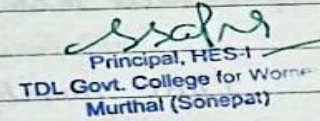 Principal, HES-I
TDL Govt. College for Wome
Murthal (Sonepat)